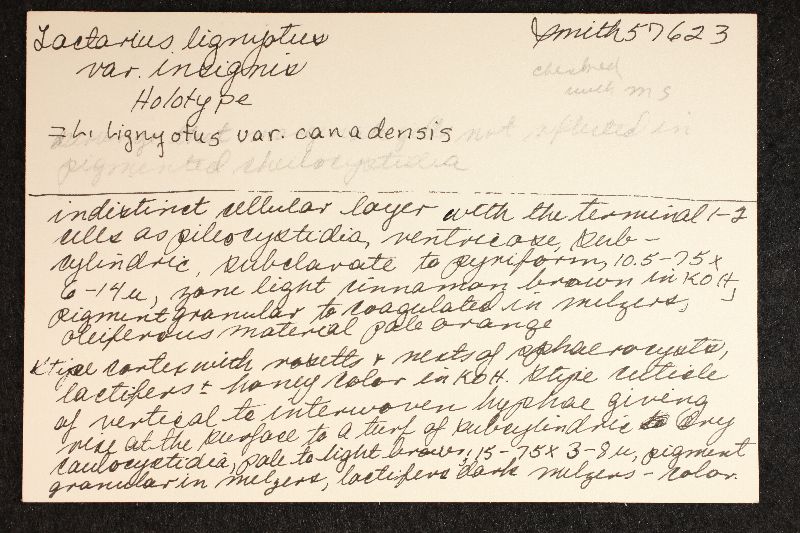 Lactarius lignyotus
var. insignis
Holotype
Smith 57623
checked
with ms
= L. lignyotus var. canadensis
not reflected in
pigmented cheilocystidia
indistinct cellular layer with the terminal 1-2
cells as pileocystidia, ventricose, sub-
cylindric, subclavate to pyriform, 10.5-75 x
6-14 u, zone light cinnamon brown in KOH,
pigment granular to coagulated in melzers,
oleiferous material pale orange
Stipe cortex with rosetts & nests of sphaerocysts,
lactifers ± honey color in KOH. Stipe cuticle
of vertical to interwoven hyphae giving
rise at the surface to a turf of subcylindric
caulocystidia, pale to light brown, 15-75 x 3-8 u, pigment
granular in melzers, lactifers dark melzers-color.